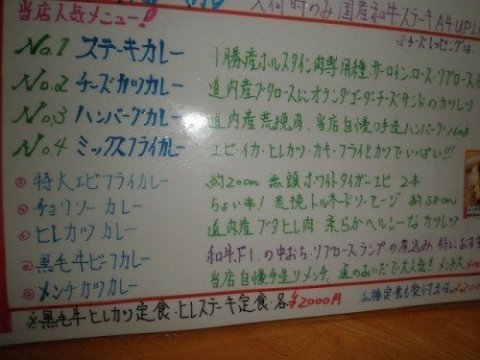 当店人気メニュー!
入荷時のみ 国産和牛ステーキ A4 UP
※チーズトッピングは、
No.1 ステーキカレー 十勝産ホルスタイン肉専用種 サーロイン・ロース・リブロース
No.2 チーズカツカレー 道内産ブタロースにオランダゴーダーチーズサンドのカツレツ
No.3 ハンバーグカレー 道内産荒挽肉、当店自慢つき産ハンバーグ160g
No.4 ミックスフライカレー エビ・イカ・ヒレカツ・カキ・フライとカツでいっぱい!!!
◎特大エビフライカレー 約20cm 無頭ホワイトタイガーエビ 2本
◎チョリソーカレー ちょい辛! 荒挽トルネードソーセージ 約58cm
◎ヒレカツカレー 道内産ブタヒレ肉 柔らかヘルシーなカツレツ
◎黒毛牛ビーフカレー 和牛F1.の中おち・リブロース、ランプの煮込み 特におすす
◎メンチカツカレー 当店自慢手造りメンチ、道のあいだで大人気! メンチ大
※黒毛牛ヒレカツ定食・ヒレステーキ定食・各¥2000円